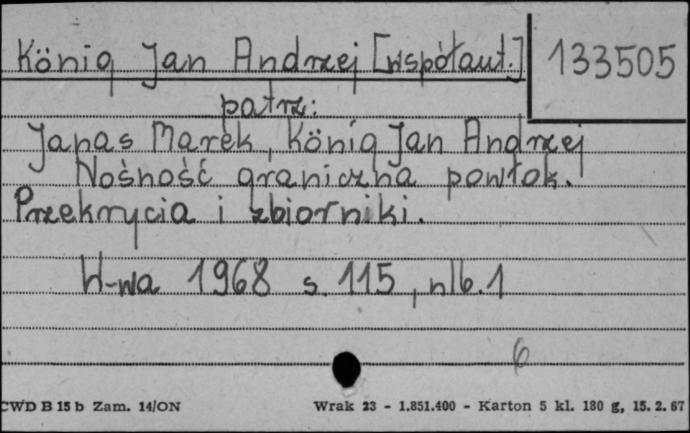 König Jan Andrzej [współaut.]
133505
patrz:
Janas Marek, König Jan Andrzej
Nośność graniczna powłok.
Przekrycia i zbiorniki.
W-wa 1968 s. 115, nlb. 1
6
CWD B 15 b Zam. 14/ON Wrak 23 - 1.851.400 - Karton 5 kl. 180 g, 15. 2. 67